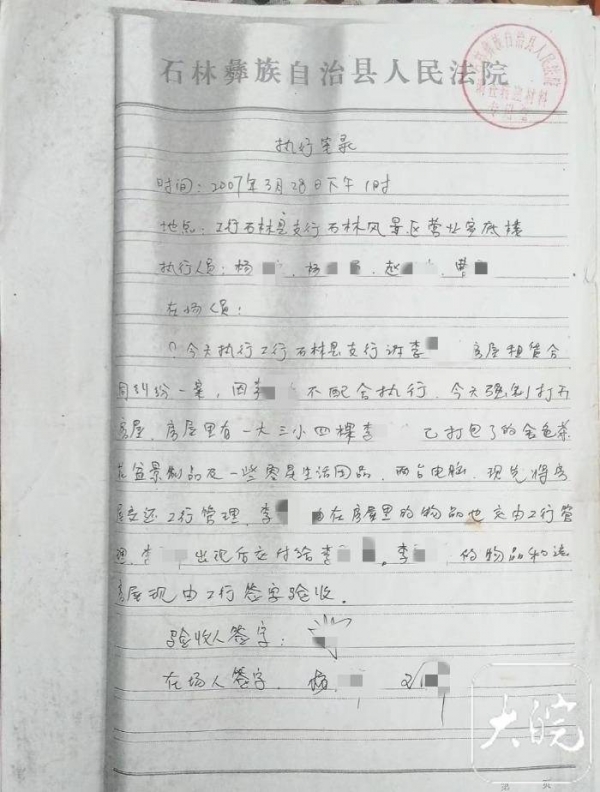 石林彝族自治县人民法院
执行笔录
时间：2007年3月28日下午1时
地点：工行石林县支行石林风景区营业室底楼
执行人员：杨 、杨 、赵 、
在场人员：
今天执行工行石林县支行诉李 房屋租赁合
同纠纷一案，因李 不配合执行，今天强制打开
房屋，房屋里有一大三小四棵李 已打包了的金色茶
花盆景制品及一些零星生活用品，两台电脑，现先将房
屋交还工行管理，李 由在房屋里的物品也交由工行管
理，李 出现后交付给李 。李 的物品和该
房屋现由工行签字验收。
验收人签字：
在场人签字 杨
大皖
第 页